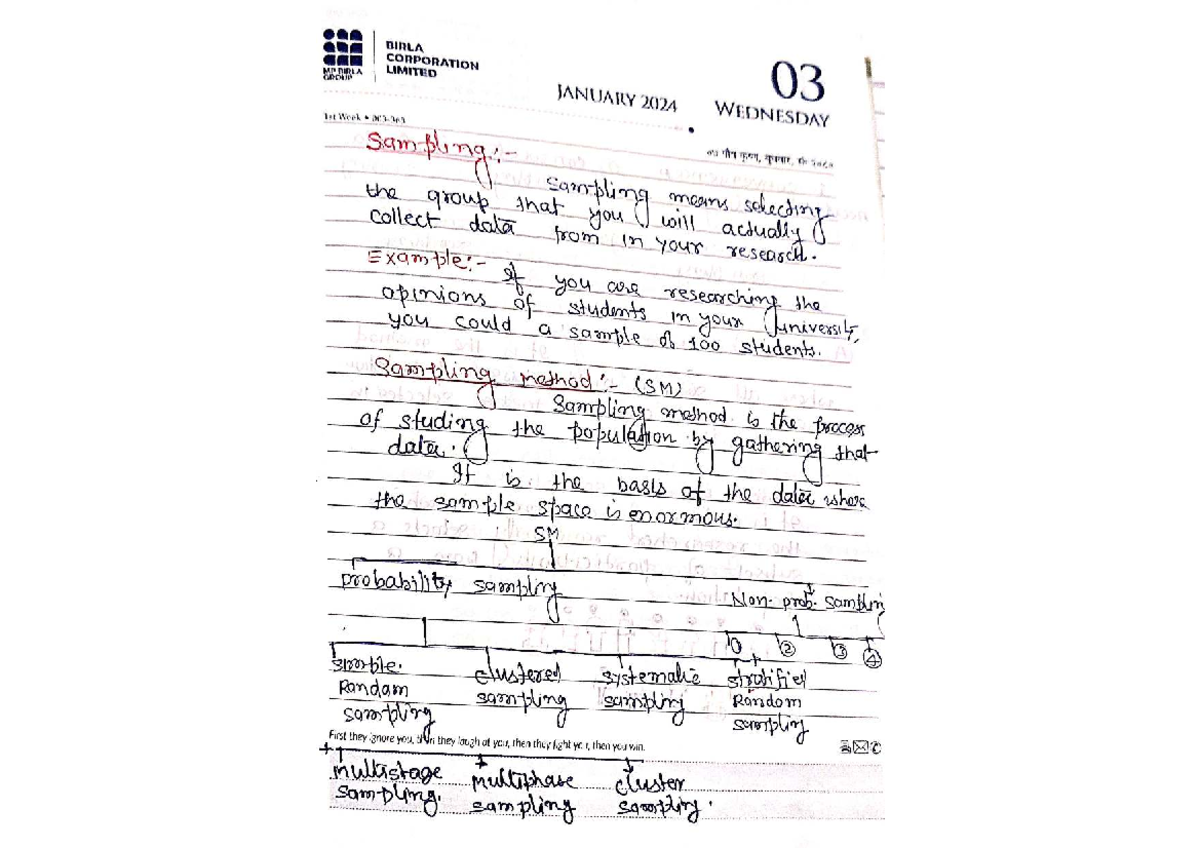 BIRLA
CORPORATION
LIMITED
MP BIRLA
GROUP
03
JANUARY 2024 WEDNESDAY
1st Week •
Sampling:-
Sampling means selecting
the group that you will actually
collect data from in your research.
Example:- If you are researching the
opinions of students in your university,
you could a sample of 100 students.
Sampling method:- (SM)
Sampling method is the process
of studing the population by gathering that
data.
It is the basis of the data where
the sample space is enormous.
SM
probability sampling
Non- prob. sampling
① ② ③ ④
simple. clustered systematic stratified
Randam sampling sampling Random
sampling sampling
First they ignore you, then they laugh at you, then they fight you, then you win.
multistage multiphase cluster
sampling. sampling sampling.